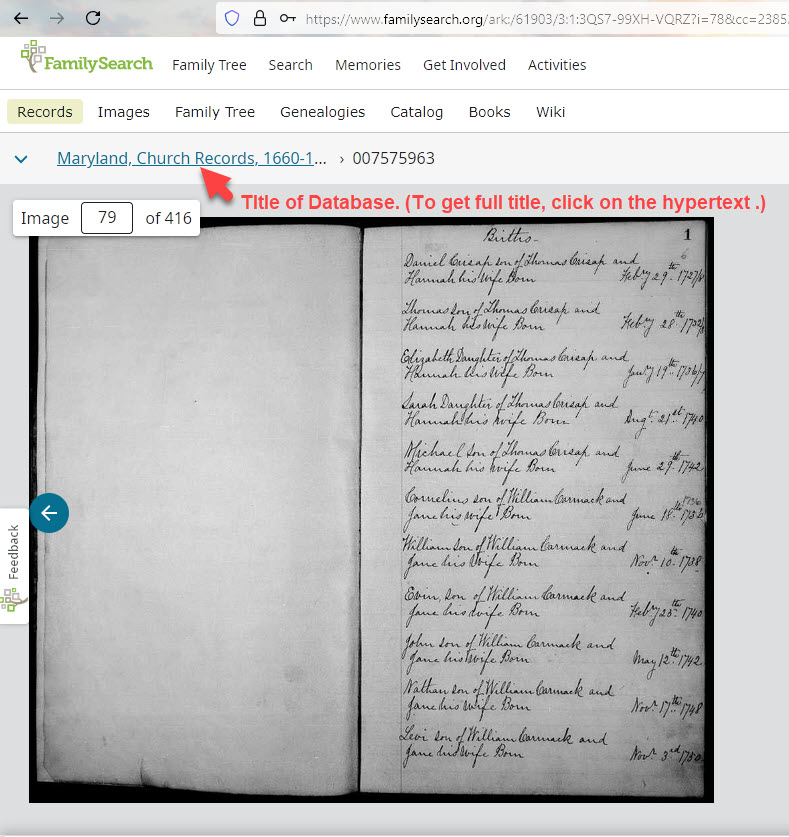 https://www.familysearch.org/ark:/61903/3:1:3QS7-99XH-VQRZ?i=78&cc=2385
FamilySearch Family Tree Search Memories Get Involved Activities
Records Images Family Tree Genealogies Catalog Books Wiki
Maryland, Church Records, 1660-1... › 007575963
Title of Database. (To get full title, click on the hypertext .)
Image 79 of 416
Births- 1
Daniel Cresap son of Thomas Cresap and
Hannah his Wife Born Febry 29th 1727/8
Thomas son of Thomas Cresap and
Hannah his wife Born Febry 28th
Elizabeth Daughter of Thomas Cresap and
Hannah his Wife Born Janry 19th 1736/7
Sarah Daughter of Thomas Cresap and
Hannah his wife Born Augt. 21st 1740
Michael Son of Thomas Cresap and
Hannah his wife Born June 29th 1742
Cornelius son of William Carmack and
Jane his wife Born June 18th
William Son of William Carmack and
Jane his Wife Born Novr 10th 1738
Evin, Son of William Carmack and
Jane his wife Born Febry 25th 1740
John son of William Carmack and
Jane his Wife Born May 12th 1742
Nathan son of William Carmack and
Jane his Wife Born Novr 17th 1748
Levi son of William Carmack and
Jane his Wife Born Novr 3rd 1750
Feedback